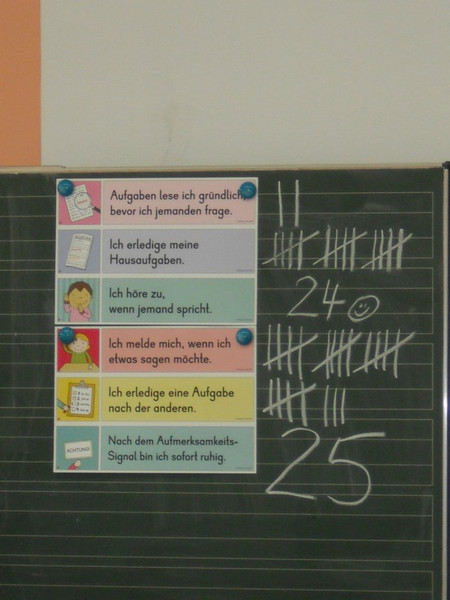 Aufgaben lese ich gründlich,
bevor ich jemanden frage.
Ich erledige meine
Hausaufgaben.
Ich höre zu,
wenn jemand spricht.
24
Ich melde mich, wenn ich
etwas sagen möchte.
Ich erledige eine Aufgabe
nach der anderen.
ACHTUNG!
Nach dem Aufmerksamkeits-
Signal bin ich sofort ruhig.
25